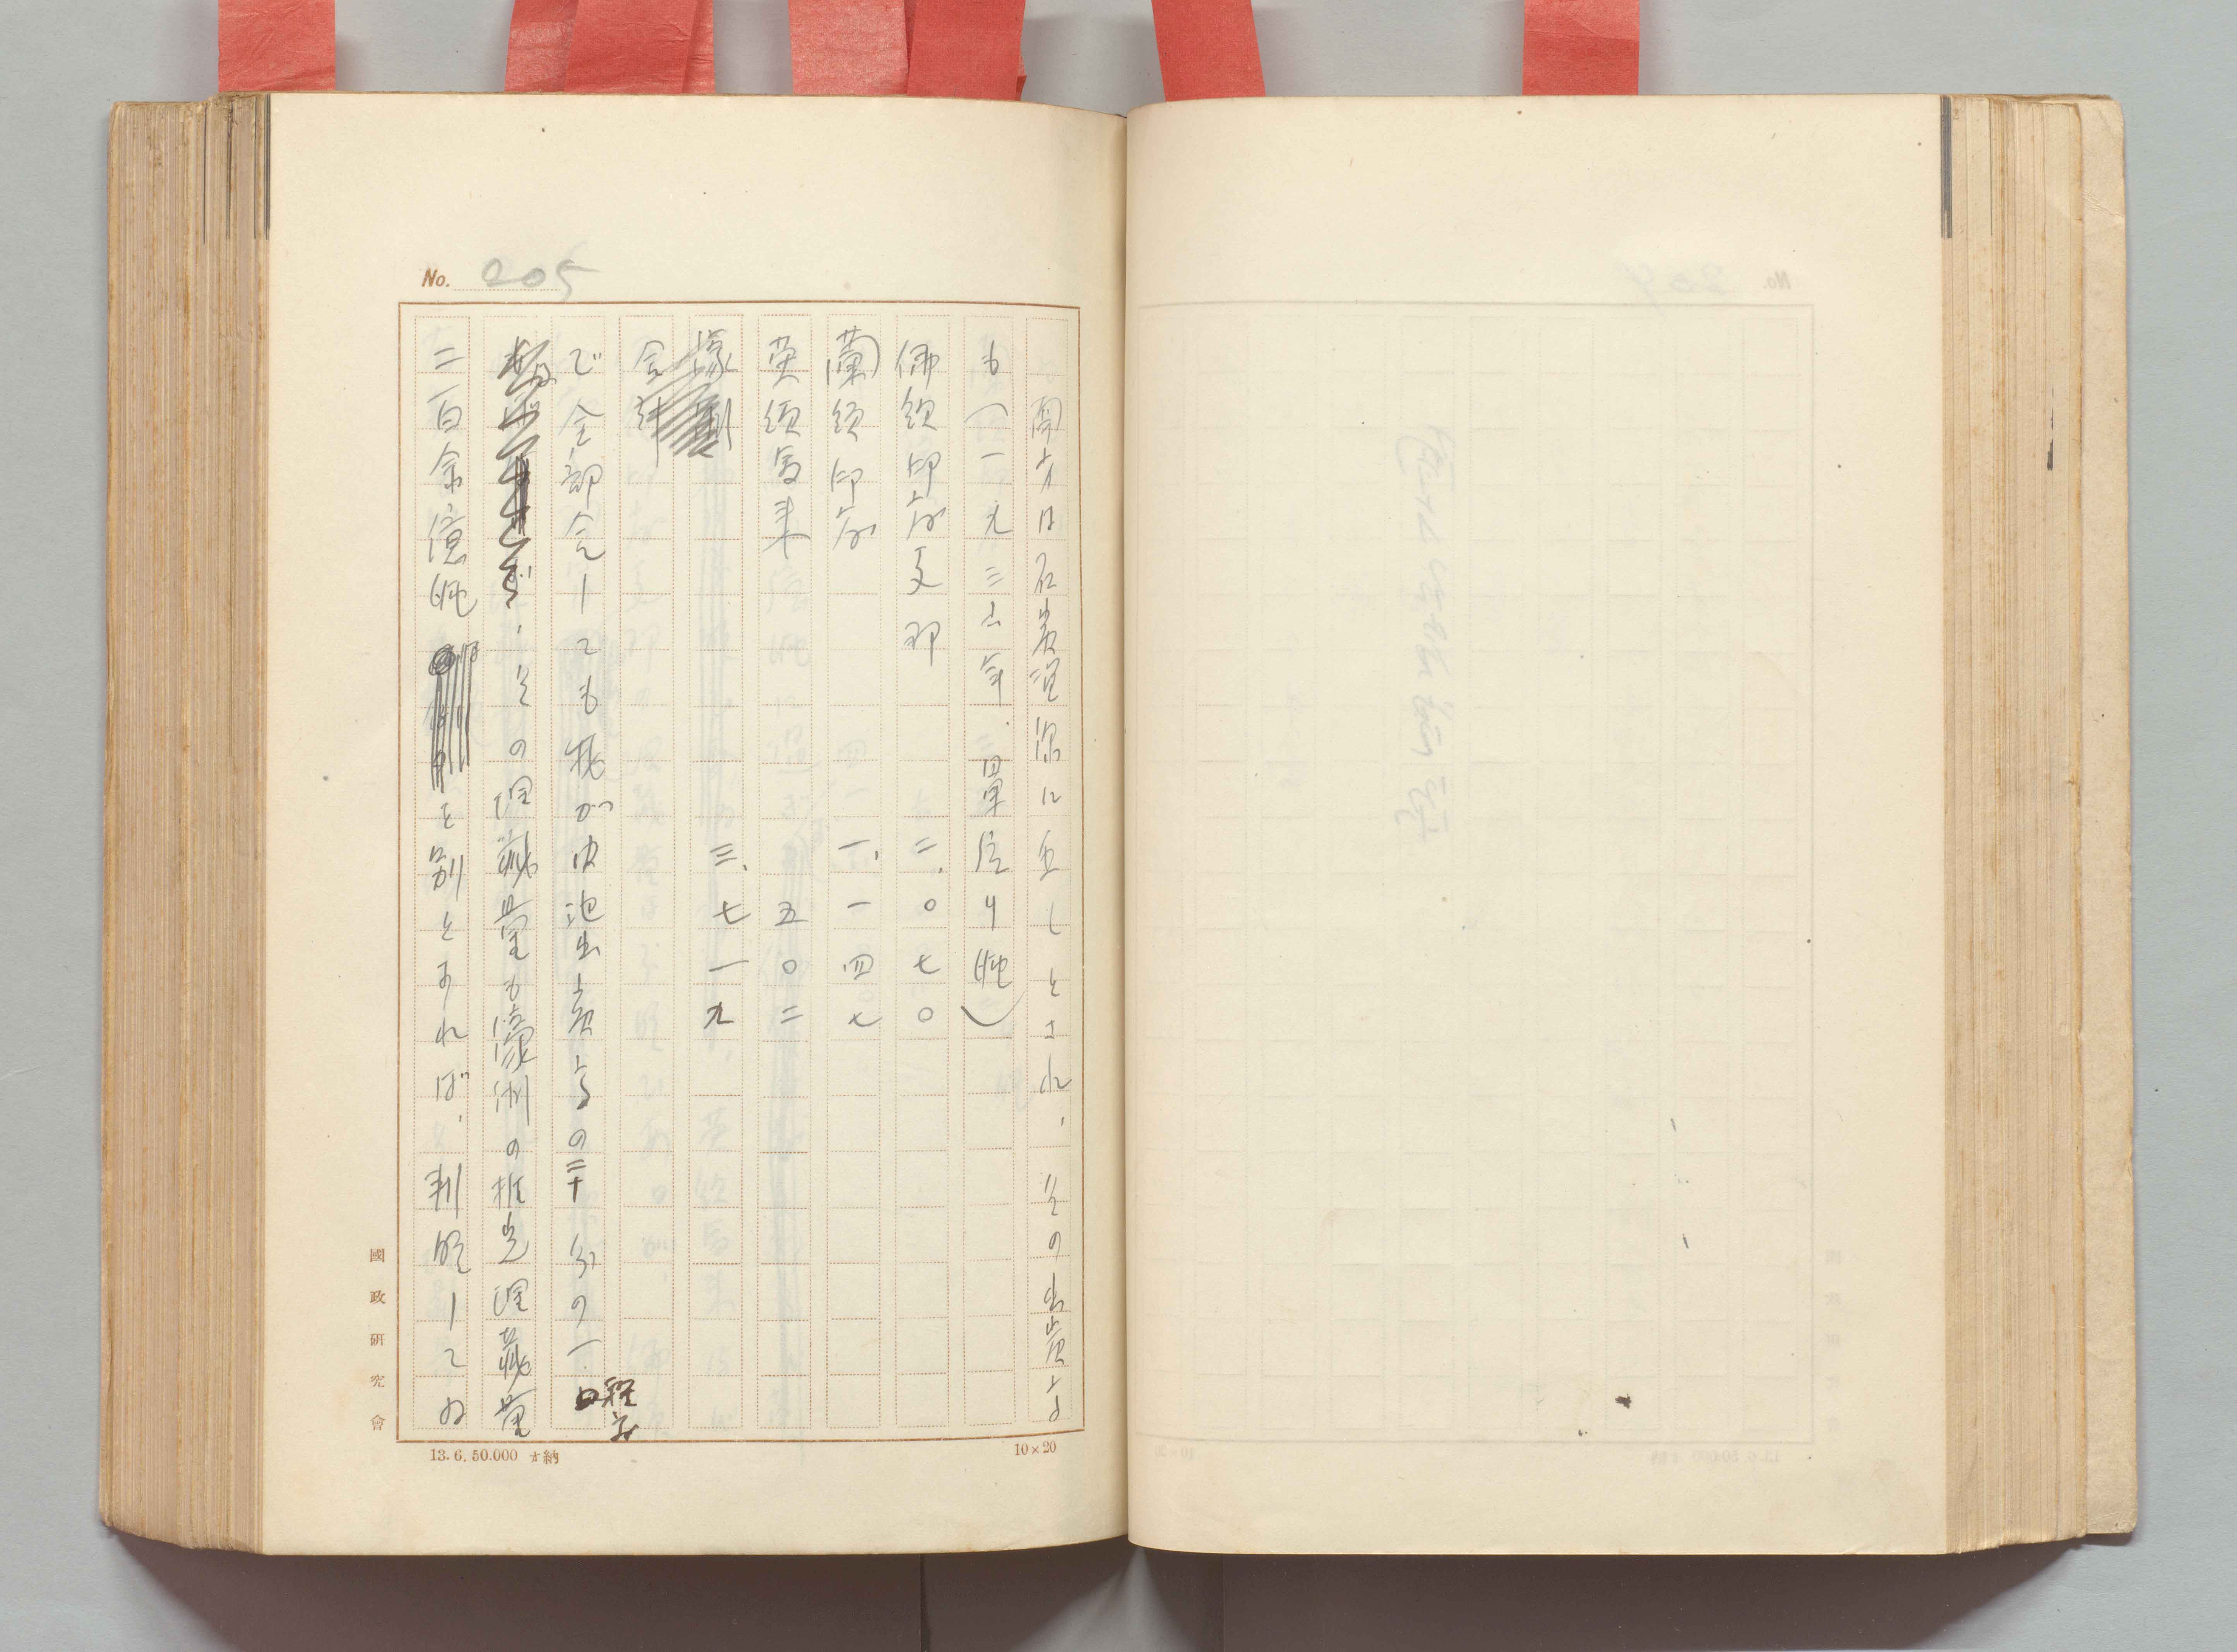 No. 205
南方は石炭資源に乏しとされ、その出炭高
も(一九三六年、單位千瓲)
佛領印度支那 二、〇七〇
蘭領印度 一、一四七
英領馬來 五〇二
合計 三、七一九
で全部合しても我が内地出炭高の二十分の一程度
、その埋藏量も濠洲の推定埋藏量
二百余億瓲を別とすれば、判明してゐ
國政研究會
13.6.50.000 納
10×20